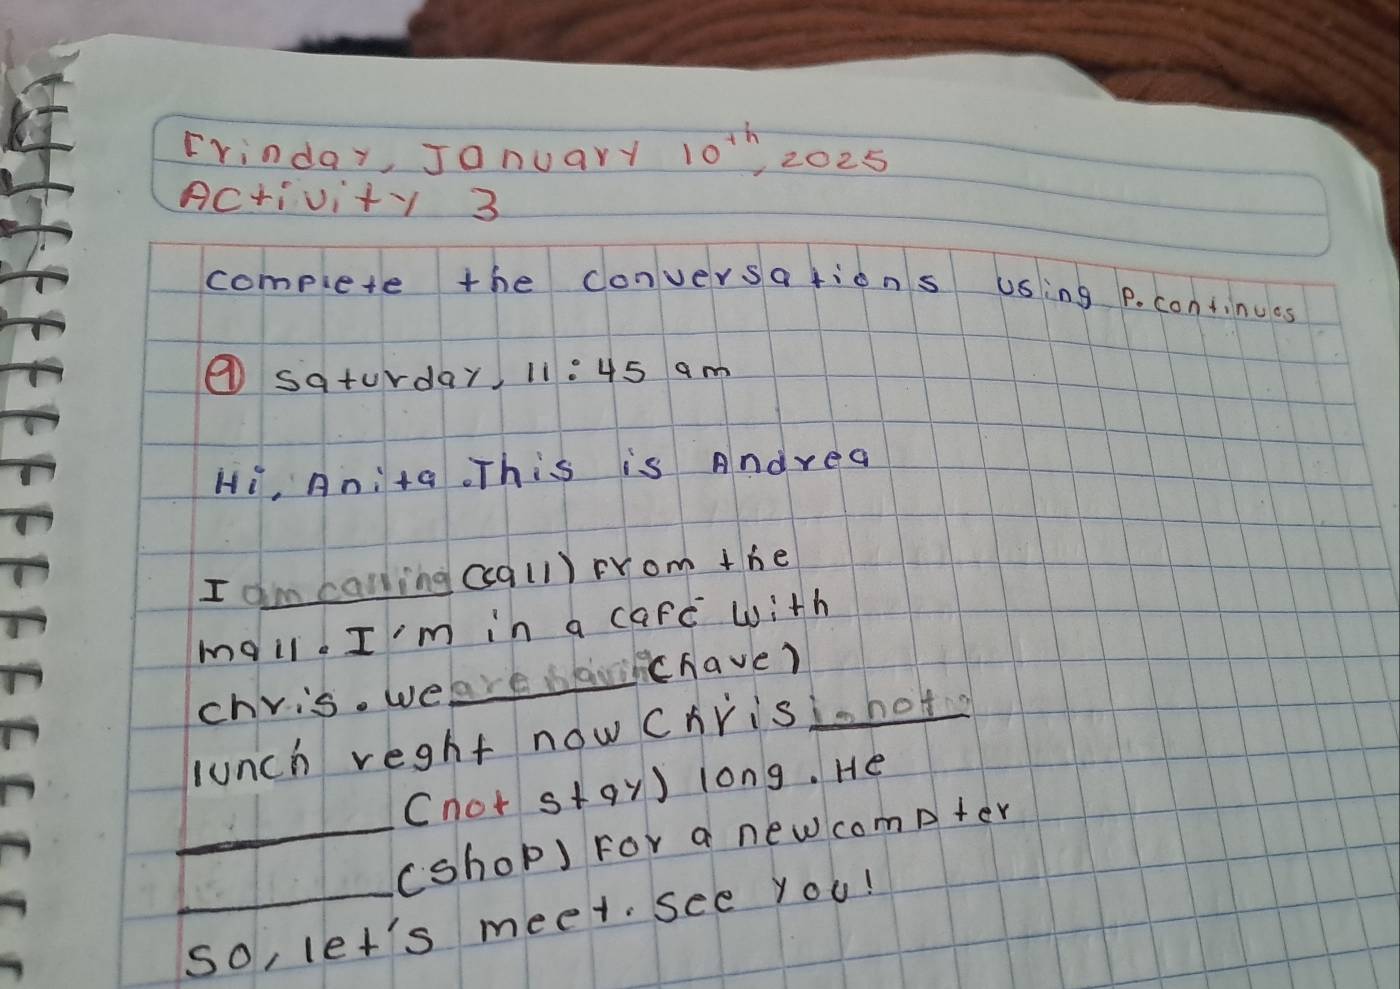 Frinday, January 10th, 2025
Activity 3
complete the conversations using P. continues
a Saturday, 11:45 am
Hi, Anita. This is Andrea
I am calling (call) From the
mall. I'm in a café with
chris. we are having (have)
lunch reght now Chris is not
(not stay) long. He
(shop) For a new compter
so, let's meet. see you!